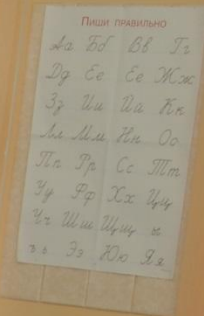 Пиши правильно
Аа Бб Вв Гг
Дд Ее Ее Жж
Зз Ии Йй Кк
Лл Мм Нн Оо
Пп Рр Сс Тт
Уу Фф Хх Цц
Чч Шш Щщ ъ
ъ ь Ээ Юю Яя